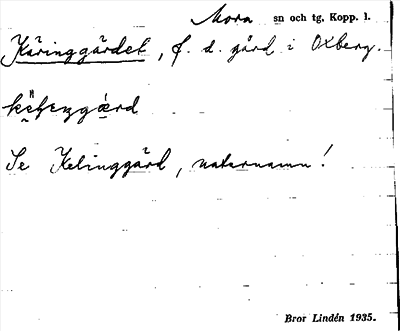 Mora sn och tg, Kopp. l.
Käringgärdet, f. d. gård i Oxberg.
Se Kelinggärd, naturnamn!
Bror Lindén 1935.